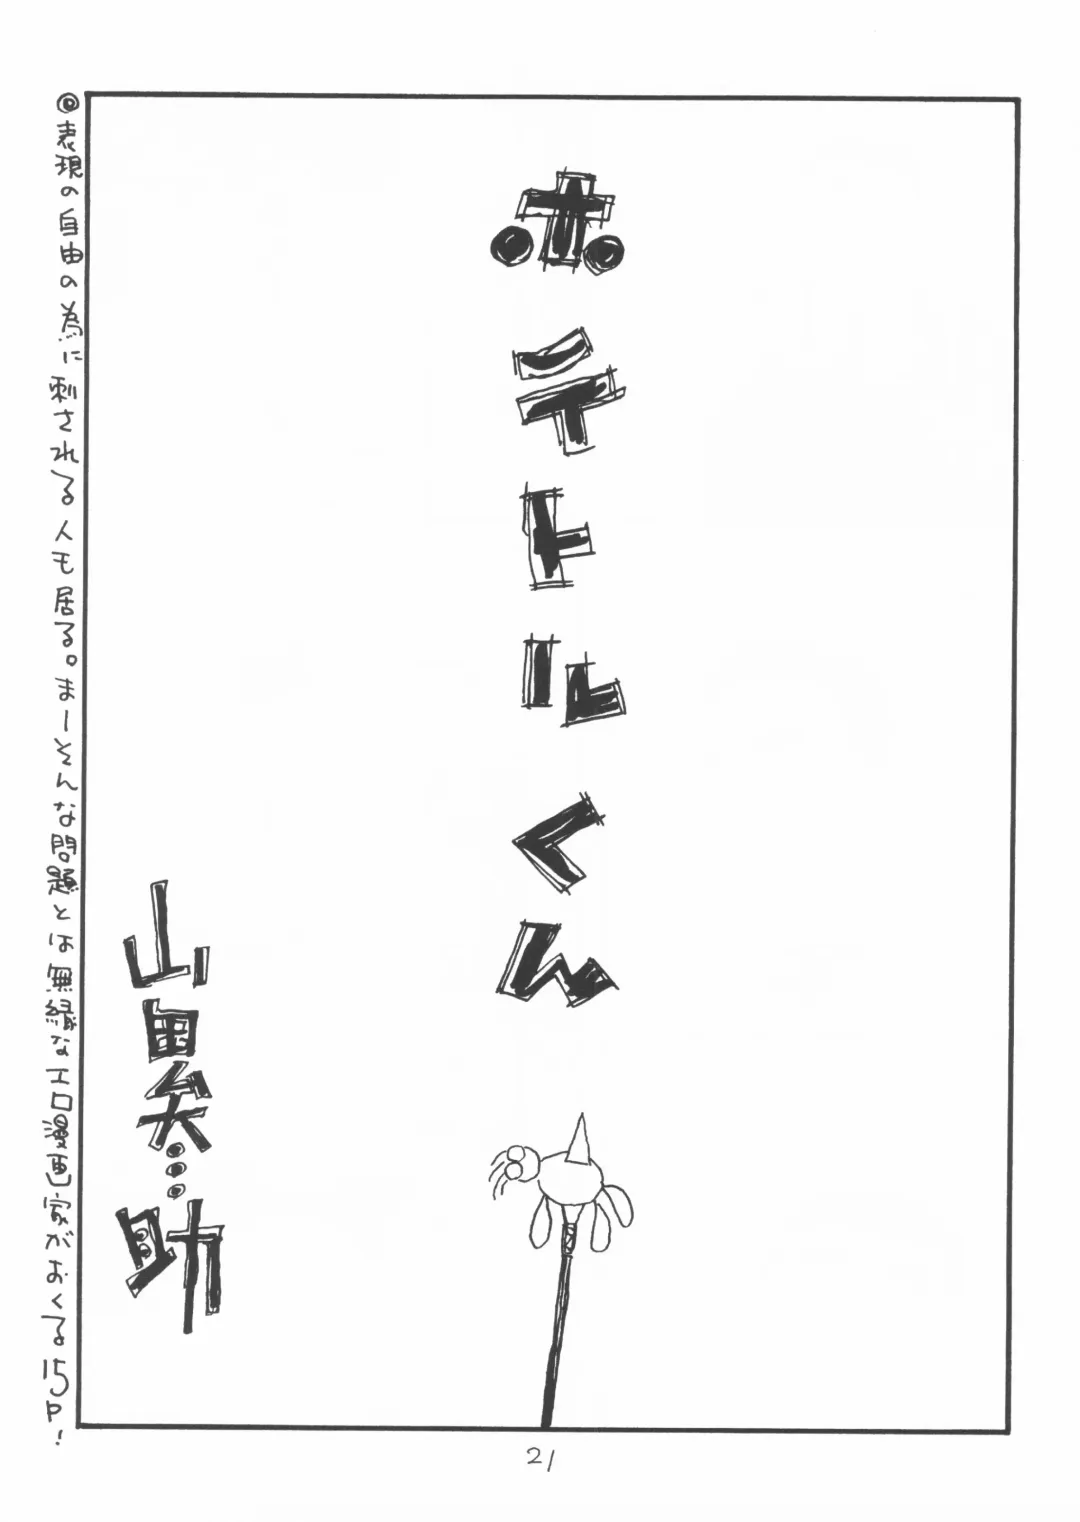 ホテトルくん
山異矢助
◎表現の自由の為に刺される人も居る。まーそんな問題とは無縁なエロ漫画家がおくる15P!
21